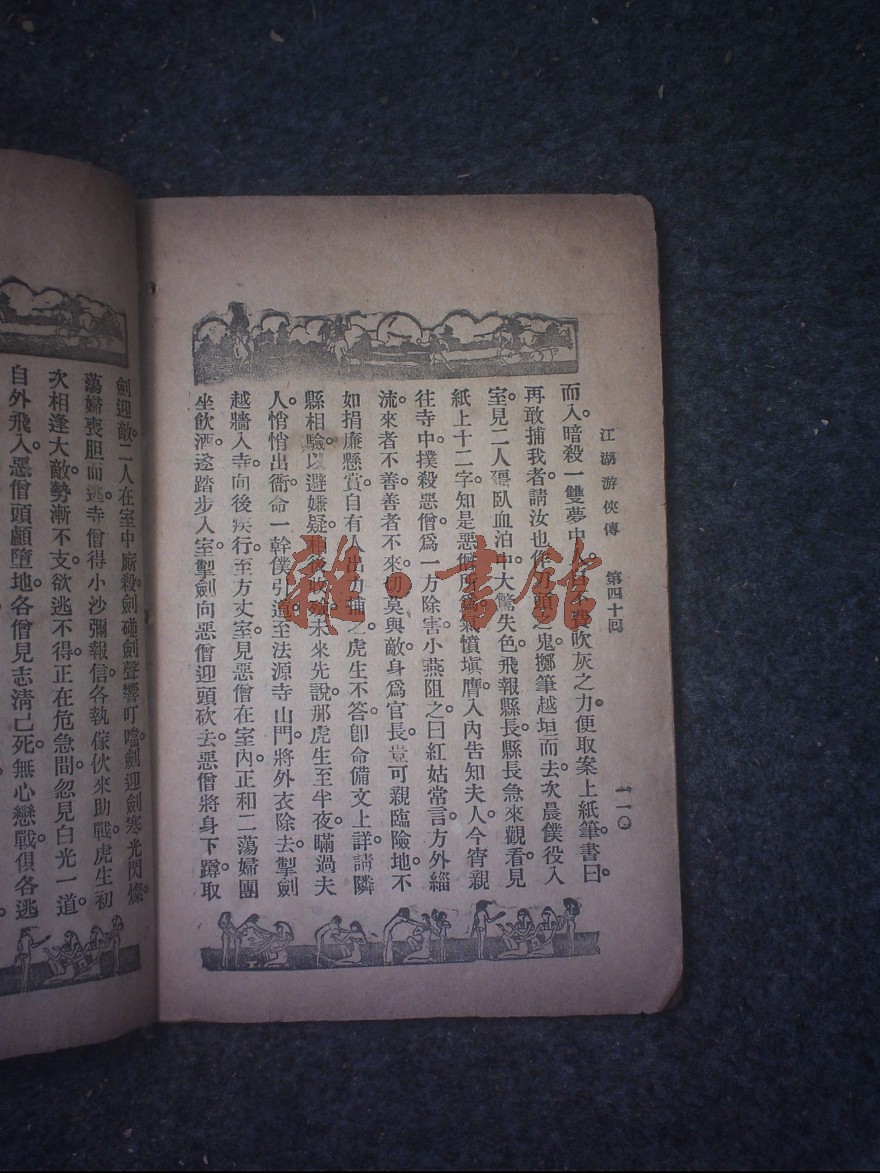 江湖游俠傳 第四十回 一一〇
而入。暗殺一雙夢中人自不費吹灰之力。便取案上紙筆。書曰。
再敢捕我者。請汝也作刀頭之鬼。擲筆越垣而去。次晨僕役入
室。見二人殭臥血泊中。大驚失色。飛報縣長。縣長急來觀看。見
紙上十二字。知是惡僧所爲。氣憤塡膺。入內告知夫人。今宵親
往寺中。撲殺惡僧。爲一方除害。小燕阻之曰。紅姑常言。方外緇
流。來者不善。善者不來。切莫與敵。身爲官長。豈可親臨險地。不
如捐廉懸賞。自有人出力捕之。虎生不答。卽命備文上詳。請隣
縣相驗。以避嫌疑。相後收殮未來先說。那虎生至半夜。瞞過夫
人。悄悄出衙。命一幹僕引道。至法源寺山門。將外衣除去。掣劍
越牆入寺。向後疾行。至方丈室。見惡僧在室內。正和二蕩婦團
坐飮酒。逡踏步入室。掣劍向惡僧迎頭砍去。惡僧將身下蹲。取
劍迎敵。二人在室中廝殺。劍碰劍聲響叮噹。劍迎劍寒光閃爍。
蕩婦喪胆而逃。寺僧得小沙彌報信。各執傢伙來助戰。虎生初
次相逢大敵。勢漸不支。欲逃不得。正在危急間。忽見白光一道。
自外飛入。惡僧頭顱墮地。各僧見志淸已死。無心戀戰。俱各逃
雜·書館